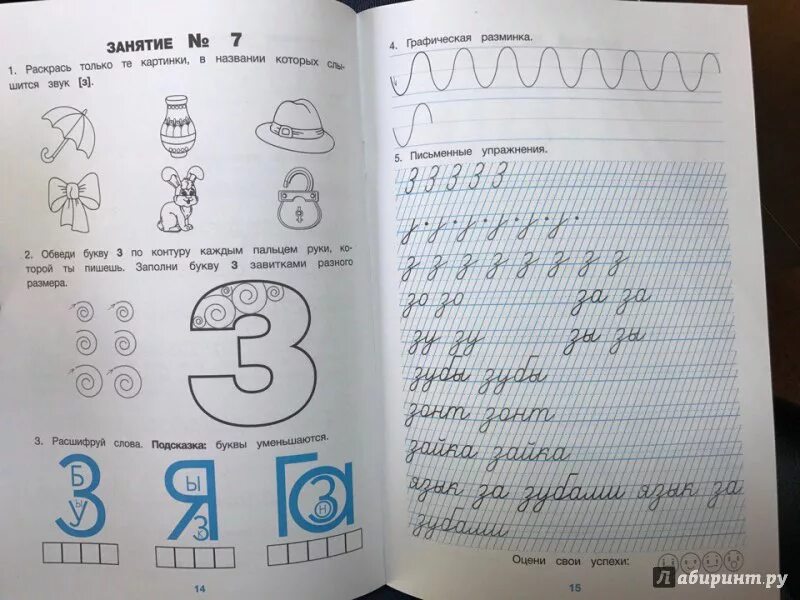 ЗАНЯТИЕ № 7
1. Раскрась только те картинки, в названии которых слы-
шится звук [з].
2. Обведи букву З по контуру каждым пальцем руки, ко-
торой ты пишешь. Заполни букву З завитками разного
размера.
З
3. Расшифруй слова. Подсказка: буквы уменьшаются.
З У Б Ы
Я З Ы К
Г А З О Н
14
4. Графическая разминка.
5. Письменные упражнения.
З З З З З
з з з з з з з з
зо зо за за
зу зу зы зы
зубы зубы
зонт зонт
зайка зайка
язык за зубами язык за
зубами
Оцени свои успехи:
15
Лабиринт.ру